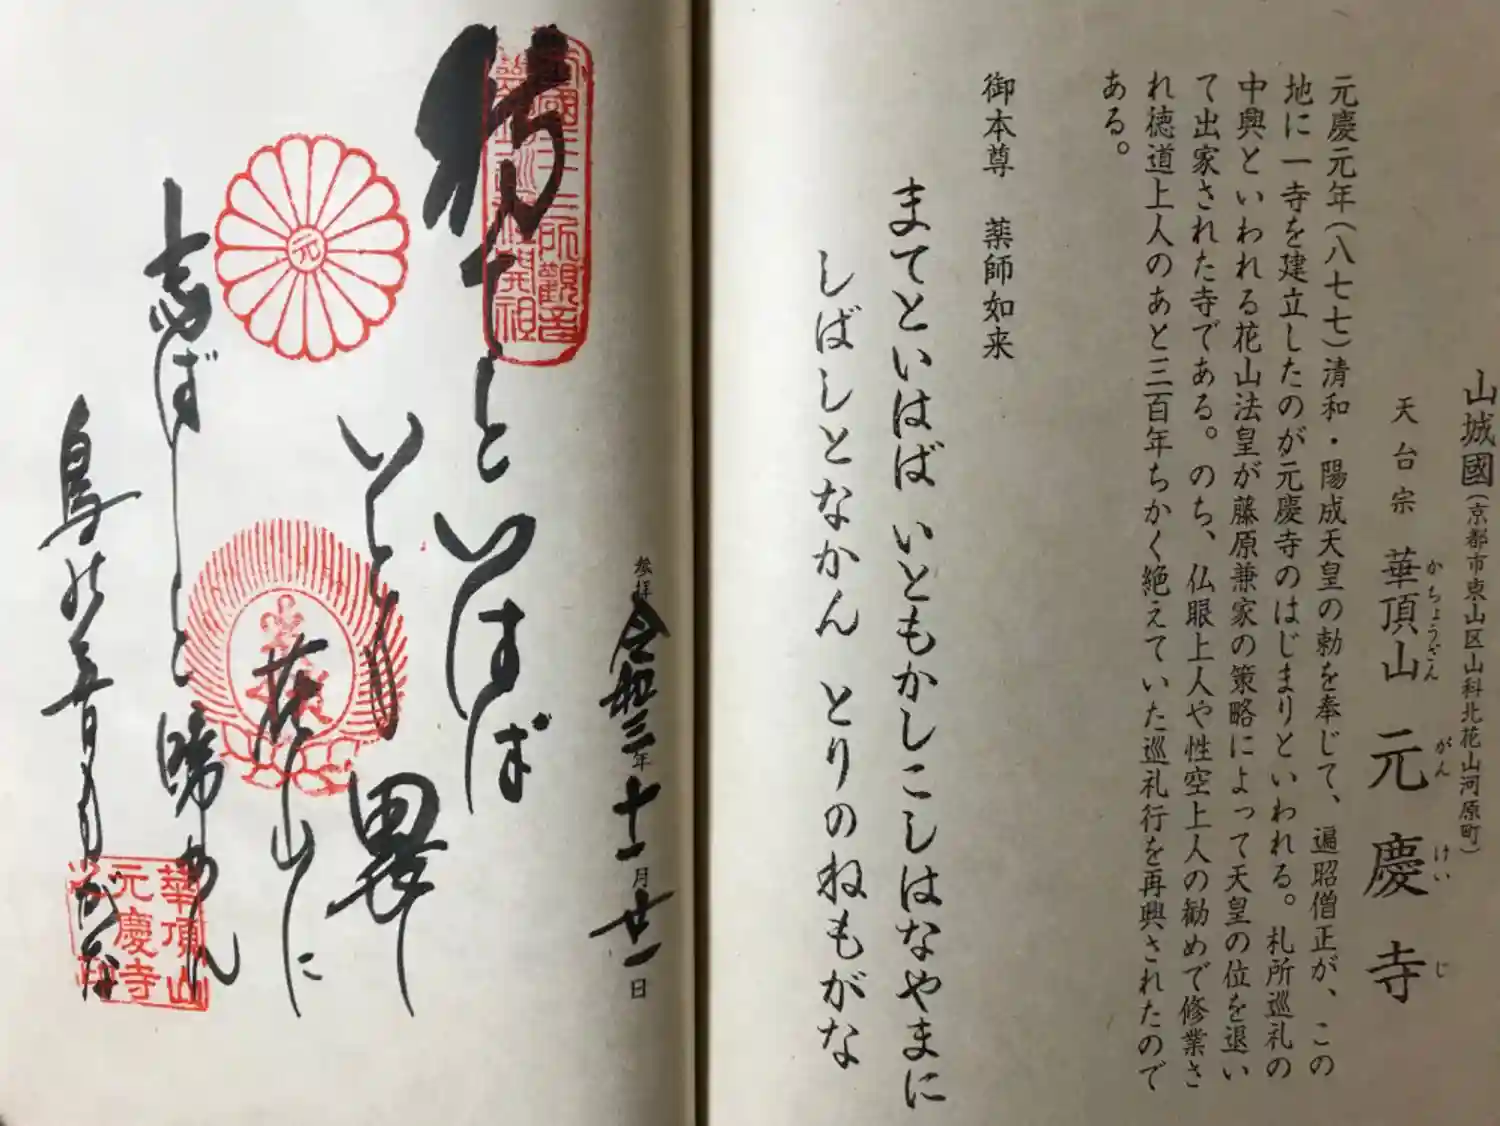 山城國(京都市東山区山科北花山河原町)
天台宗 華頂山 元慶寺
かちょうざん がんけいじ
元慶元年(八七七)清和・陽成天皇の勅を奉じて、遍昭僧正が、この
地に一寺を建立したのが元慶寺のはじまりといわれる。札所巡礼の
中興といわれる花山法皇が藤原兼家の策略によって天皇の位を退い
て出家された寺である。のち、仏眼上人や性空上人の勧めで修業さ
れ徳道上人のあと三百年ちかく絶えていた巡礼行を再興されたので
ある。
御本尊 薬師如来
まてといはば いともかしこしはなやまに
しばしとなかん とりのねもがな
参拝 令和三年十一月廿一日
待てといはば
いとも畏し
花山に
志ばしと啼かん
鳥の音もがな
西國三十三所觀音
巡禮開祖
元
華頂山
元慶寺